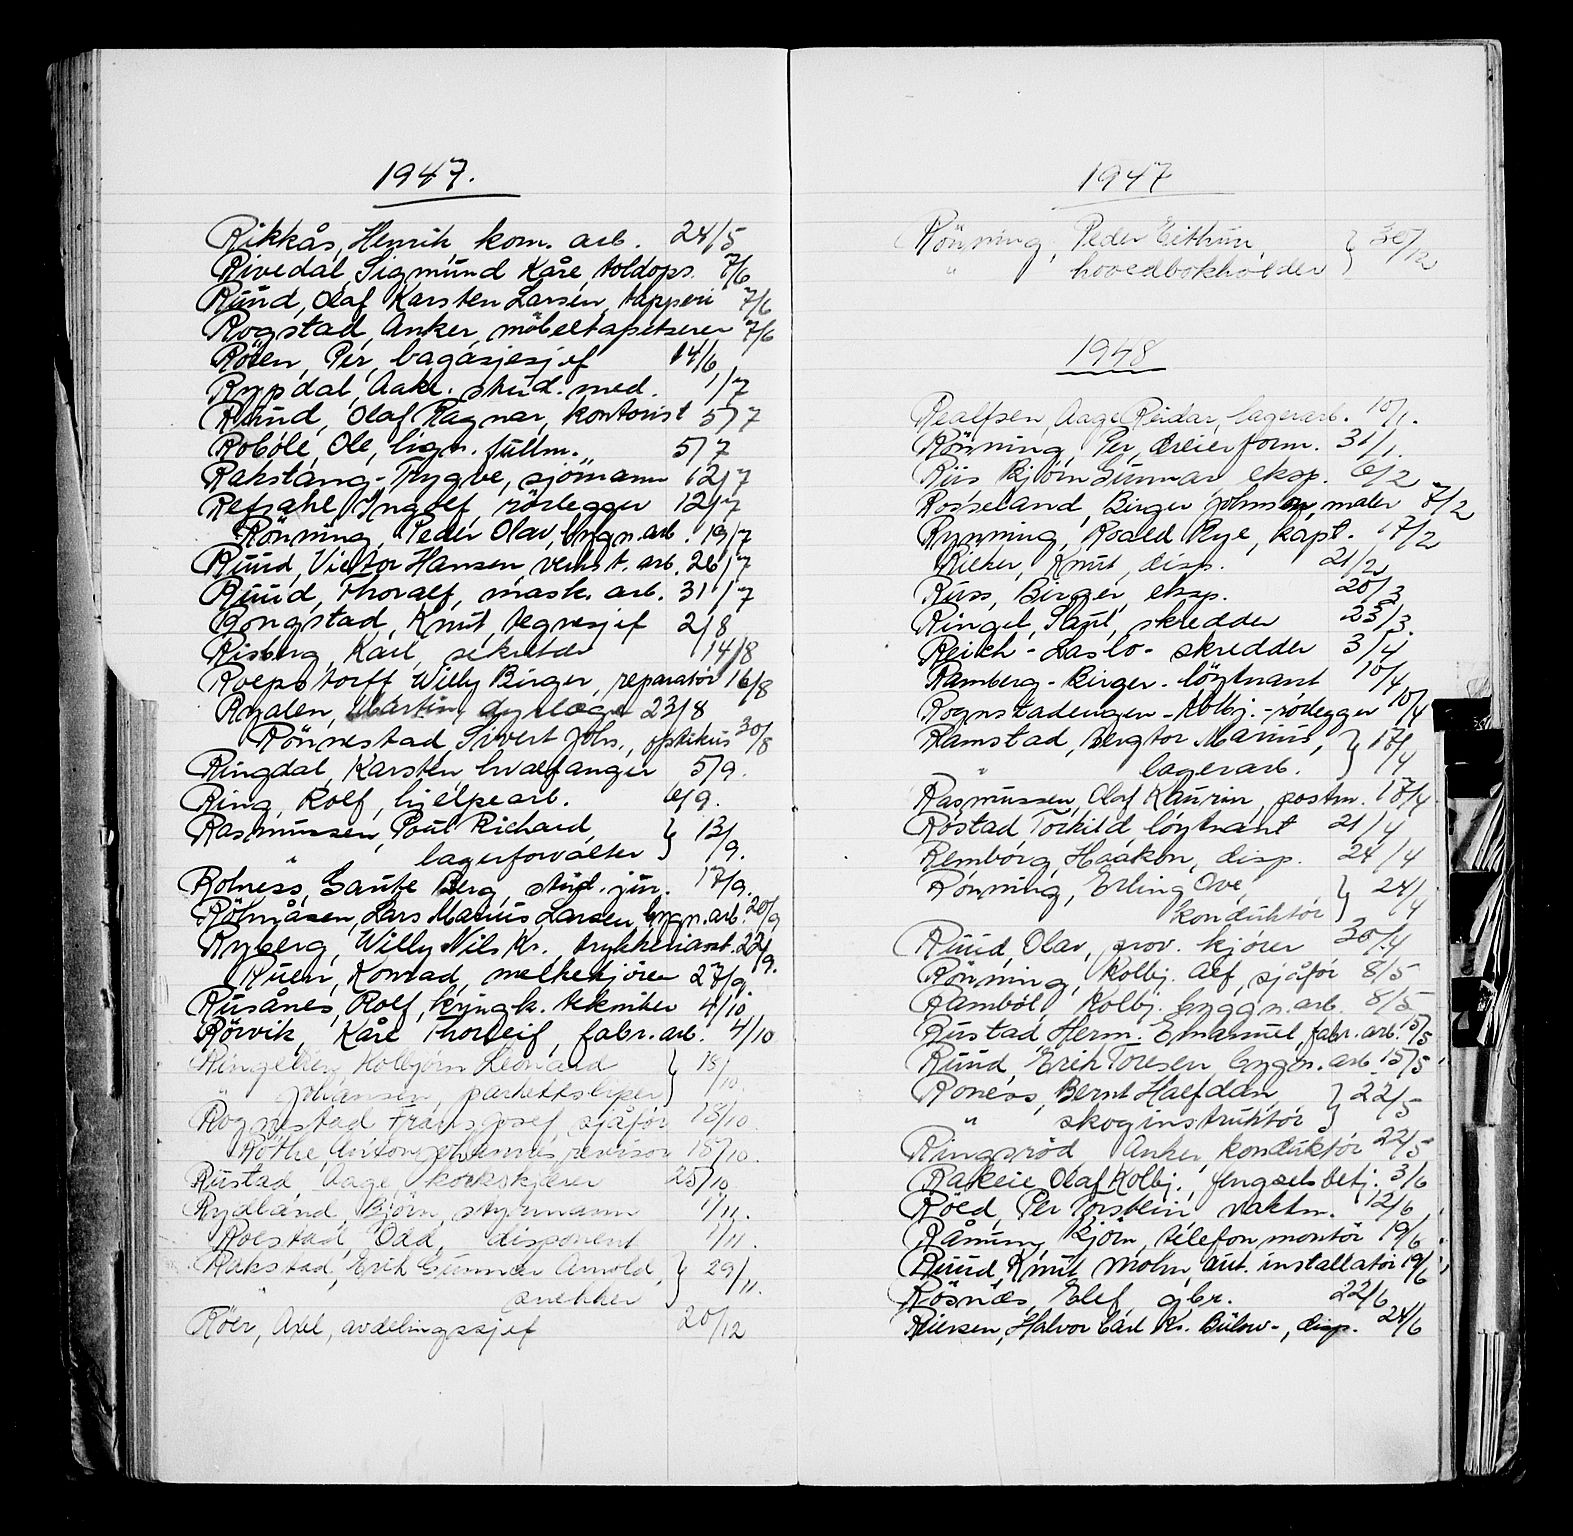 1947.
Rikkås, Henrik kom. arb. 24/5
Rivedal, Sigmund Kåre, toldops. 7/6
Ruud, Olaf Karsten Larsen, tapperi 7/6
Rogstad, Anker, møbeltapetserer 7/6
Røen, Per, bagasjesjef 14/6
Rypdal, stud. med. 1/7
Ruud, Olaf Ragnar, kontorist 5/7
Robøle, Ole, lign. fullm. 5/7
Rakstang - Trygve, sjömann 12/7
Refsahl, Ingolf, rörlegger 12/7
Rönning, Peder Olav, bygn. arb. 19/7
Ruud, Victor Hansen, verkst. arb. 26/7
Ruud, Thoralf, mask. arb. 31/7
Rongstad, Knut, tegnesjef 2/8
Risberg, Karl, sekretær 14/8
Roepstorff, Willy Birger, reparatør 16/8
Ryalen, Martin, dyrlæge 23/8
Rönnestad, Sivert Johs., optikus 30/8
Ringdal, Karsten, hvalfanger 5/9.
Ring, Rolf, hjelpearb. 6/9.
Rasmussen, Poul Richard, } 13/9.
" lagerforvalter
Rolness, Gaute Berg, stud. jur. 17/9.
Lars Marius Larsen, bygn. arb. 20/9
Ryberg, Willy Nils Kr. 22/9.
Konrad, melkekjörer 27/9
Rusånes, Rolf, tekniker 4/10
Rörvik, Kåre Thorleif, fabr. arb. 4/10
Kolbjørn Leonard } 18/10.
" Johansen, parkettsliper
Rognestad Frans Josef sjåför 18/10.
Röthe, Anton Johannes, revisor 18/10.
Rustad, Aage, korkskjærer 25/10
Rydland, Björn, styrmann 1/11.
Roestad, Odd, disponent 1/11.
Rakstad, Erik Gunnar Arnold, } 29/11.
" snekker
Röer, Axel, avdelingssjef 20/12
1947
Rönning, Peder Eithun, } 30/12
" hovedbokholder
1948
Realfsen, Aage Reidar, lagerarb. 10/1.
Rönning, Per, dreierform. 31/1.
Riis Bjørn Gunnar eksp. 6/2
Rosseland, Birger Johnson, maler 7/2
Rynning, Roald Rye, kapt. 17/2
Rieker, Knut, disp. 21/2
Russ, Birger, eksp. 20/3
Ringel, Saul, skredder 23/3.
Reich - Laslo - skredder 3/4
Ramberg - Birger - löytnant 10/4
Rognstadengen - Kolbj. - rörlegger 10/4
Ramstad, Bergtor Marius, } 17/4
" lagerarb.
Rasmussen, Olaf Kaurin, postm. 17/4
Röstad, Torkild löytnant 21/4
Remborg, Haakon, disp. 24/4
Rönning, Erling Ove, } 24/4
konduktör
Ruud, Olav, prov. kjörer 30/4
Rönning, Kolbj. Alf, sjåför 8/5
Ramböl, Kolbj. byggn. arb. 8/5
Rustad Herm. Emanuel, fabr. arb. 15/5
Ruud, Erik Toresen bygn. arb. 15/5
Roness, Bernt Halfdan } 22/5
" skoginstruktör
Ringsröd, Anker, konduktör 22/5
Rakeie, Olaf Kolbj., fengselsbetj. 3/6
Röed, Per Torstein, vaktm. 12/6
Björn, telefonmontör 19/6
Ruud, Knut Mohn, aut. installatör 19/6
Rösnæs, Elef gbr. 22/6
Halvor Carl Kr. Bülow-, disp. 24/6